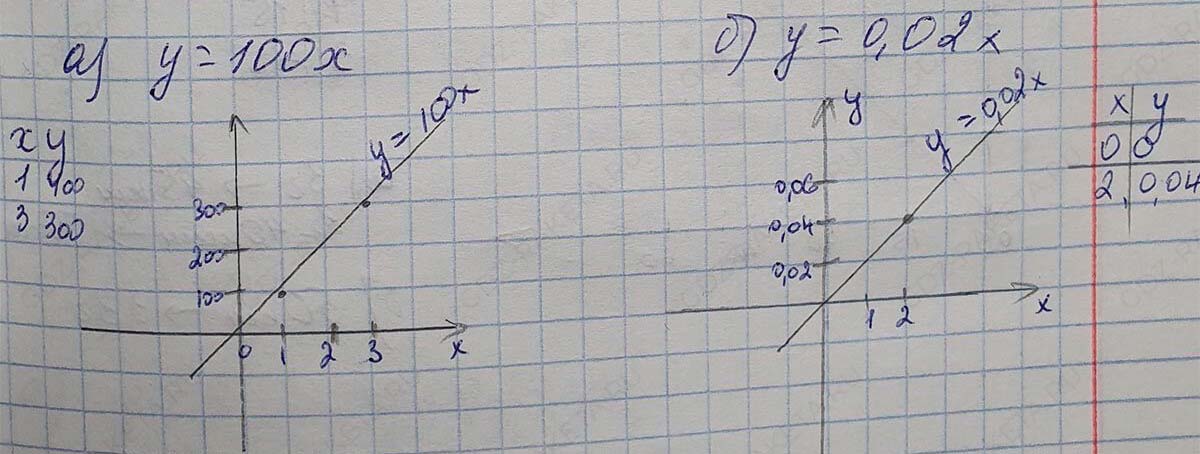 а) y = 100x
x y
1 100
3 300
y = 100x
300
200
100
0 1 2 3 x
б) y = 0,02x
y
y = 0,02x
0,06
0,04
0,02
1 2 x
x y
0 0
2, 0,04